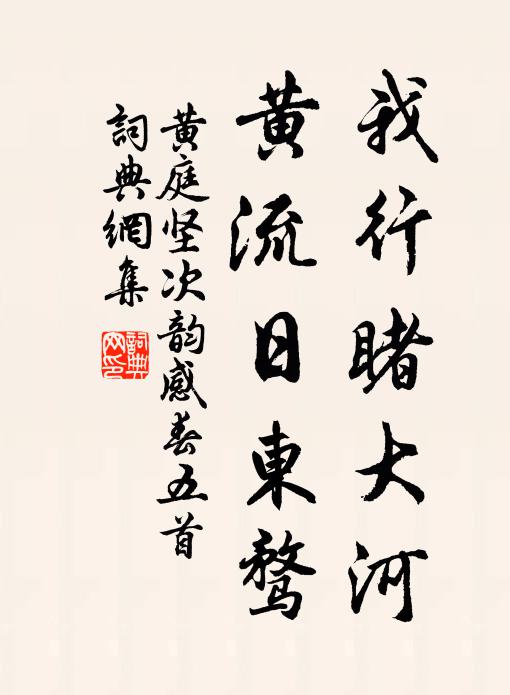 我行睹大河
黄流日東鶩
黄庭坚次韵感春五首
詞典網集
詞典网印